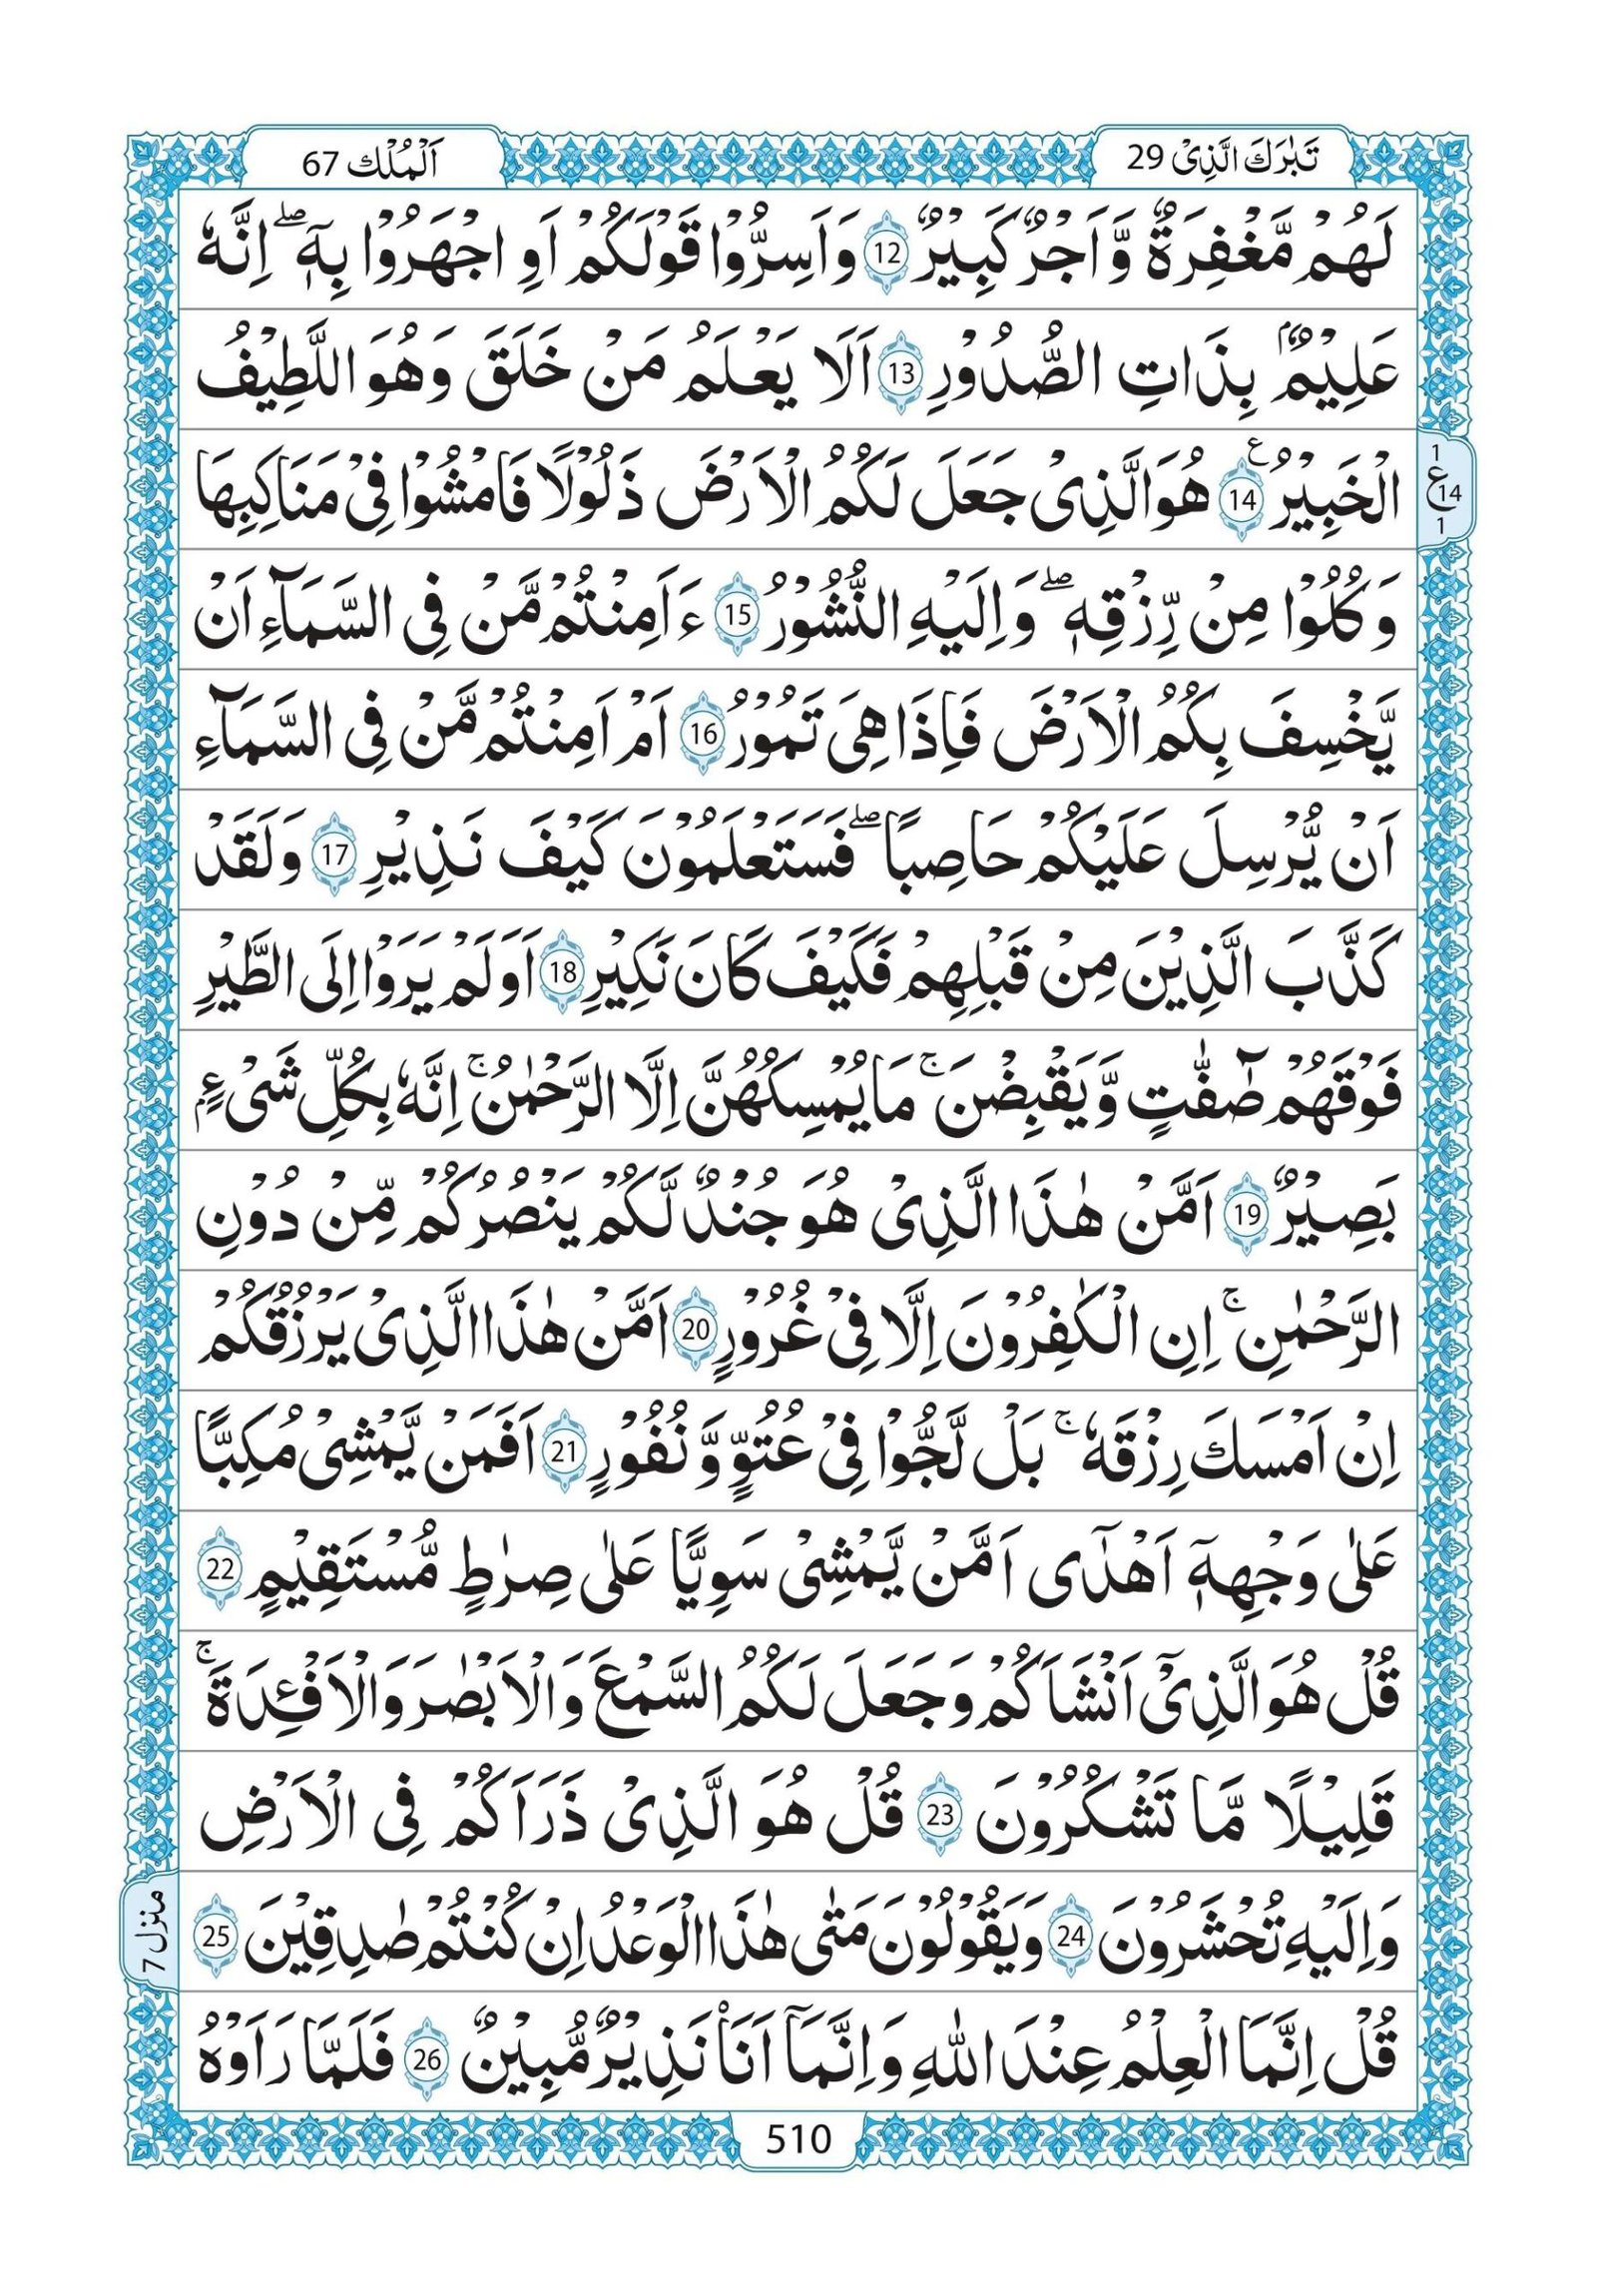 تَبٰرَكَ الَّذِىْ 29
اَلْمُلْك 67
لَهُمْ مَّغْفِرَةٌ وَّاَجْرٌ كَبِيْرٌ 12 وَاَسِرُّوْا قَوْلَكُمْ اَوِ اجْهَرُوْا بِهٖ ؕ اِنَّهٗ
عَلِيْمٌۢ بِذَاتِ الصُّدُوْرِ 13 اَلَا يَعْلَمُ مَنْ خَلَقَ وَهُوَ اللَّطِيْفُ
الْخَبِيْرُ 14 هُوَ الَّذِىْ جَعَلَ لَكُمُ الْاَرْضَ ذَلُوْلًا فَامْشُوْا فِىْ مَنَاكِبِهَا
1
ع
14
1
وَكُلُوْا مِنْ رِّزْقِهٖ ۖ وَاِلَيْهِ النُّشُوْرُ 15 ءَاَمِنْتُمْ مَّنْ فِى السَّمَآءِ اَنْ
يَّخْسِفَ بِكُمُ الْاَرْضَ فَاِذَا هِىَ تَمُوْرُ 16 اَمْ اَمِنْتُمْ مَّنْ فِى السَّمَآءِ
اَنْ يُّرْسِلَ عَلَيْكُمْ حَاصِبًا ۖ فَسَتَعْلَمُوْنَ كَيْفَ نَذِيْرِ 17 وَلَقَدْ
كَذَّبَ الَّذِيْنَ مِنْ قَبْلِهِمْ فَكَيْفَ كَانَ نَكِيْرِ 18 اَوَلَمْ يَرَوْا اِلَى الطَّيْرِ
فَوْقَهُمْ صٰٓفّٰتٍ وَّيَقْبِضْنَ ۚ مَا يُمْسِكُهُنَّ اِلَّا الرَّحْمٰنُ ۚ اِنَّهٗ بِكُلِّ شَىْءٍۭ
بَصِيْرٌ 19 اَمَّنْ هٰذَا الَّذِىْ هُوَ جُنْدٌ لَّكُمْ يَنْصُرُكُمْ مِّنْ دُوْنِ
الرَّحْمٰنِ ۚ اِنِ الْكٰفِرُوْنَ اِلَّا فِىْ غُرُوْرٍ 20 اَمَّنْ هٰذَا الَّذِىْ يَرْزُقُكُمْ
اِنْ اَمْسَكَ رِزْقَهٗ ۚ بَلْ لَّجُّوْا فِىْ عُتُوٍّ وَّنُفُوْرٍ 21 اَفَمَنْ يَّمْشِىْ مُكِبًّا
عَلٰى وَجْهِهٖٓ اَهْدٰٓى اَمَّنْ يَّمْشِىْ سَوِيًّا عَلٰى صِرٰطٍ مُّسْتَقِيْمٍ 22
قُلْ هُوَ الَّذِىْٓ اَنْشَاَكُمْ وَجَعَلَ لَكُمُ السَّمْعَ وَالْاَبْصٰرَ وَالْاَفْئِدَةَ ۚ
قَلِيْلًا مَّا تَشْكُرُوْنَ 23 قُلْ هُوَ الَّذِىْ ذَرَاَكُمْ فِى الْاَرْضِ
وَاِلَيْهِ تُحْشَرُوْنَ 24 وَيَقُوْلُوْنَ مَتٰى هٰذَا الْوَعْدُ اِنْ كُنْتُمْ صٰدِقِيْنَ 25
منزل 7
قُلْ اِنَّمَا الْعِلْمُ عِنْدَ اللّٰهِ وَاِنَّمَآ اَنَا۠ نَذِيْرٌ مُّبِيْنٌ 26 فَلَمَّا رَاَوْهُ
510